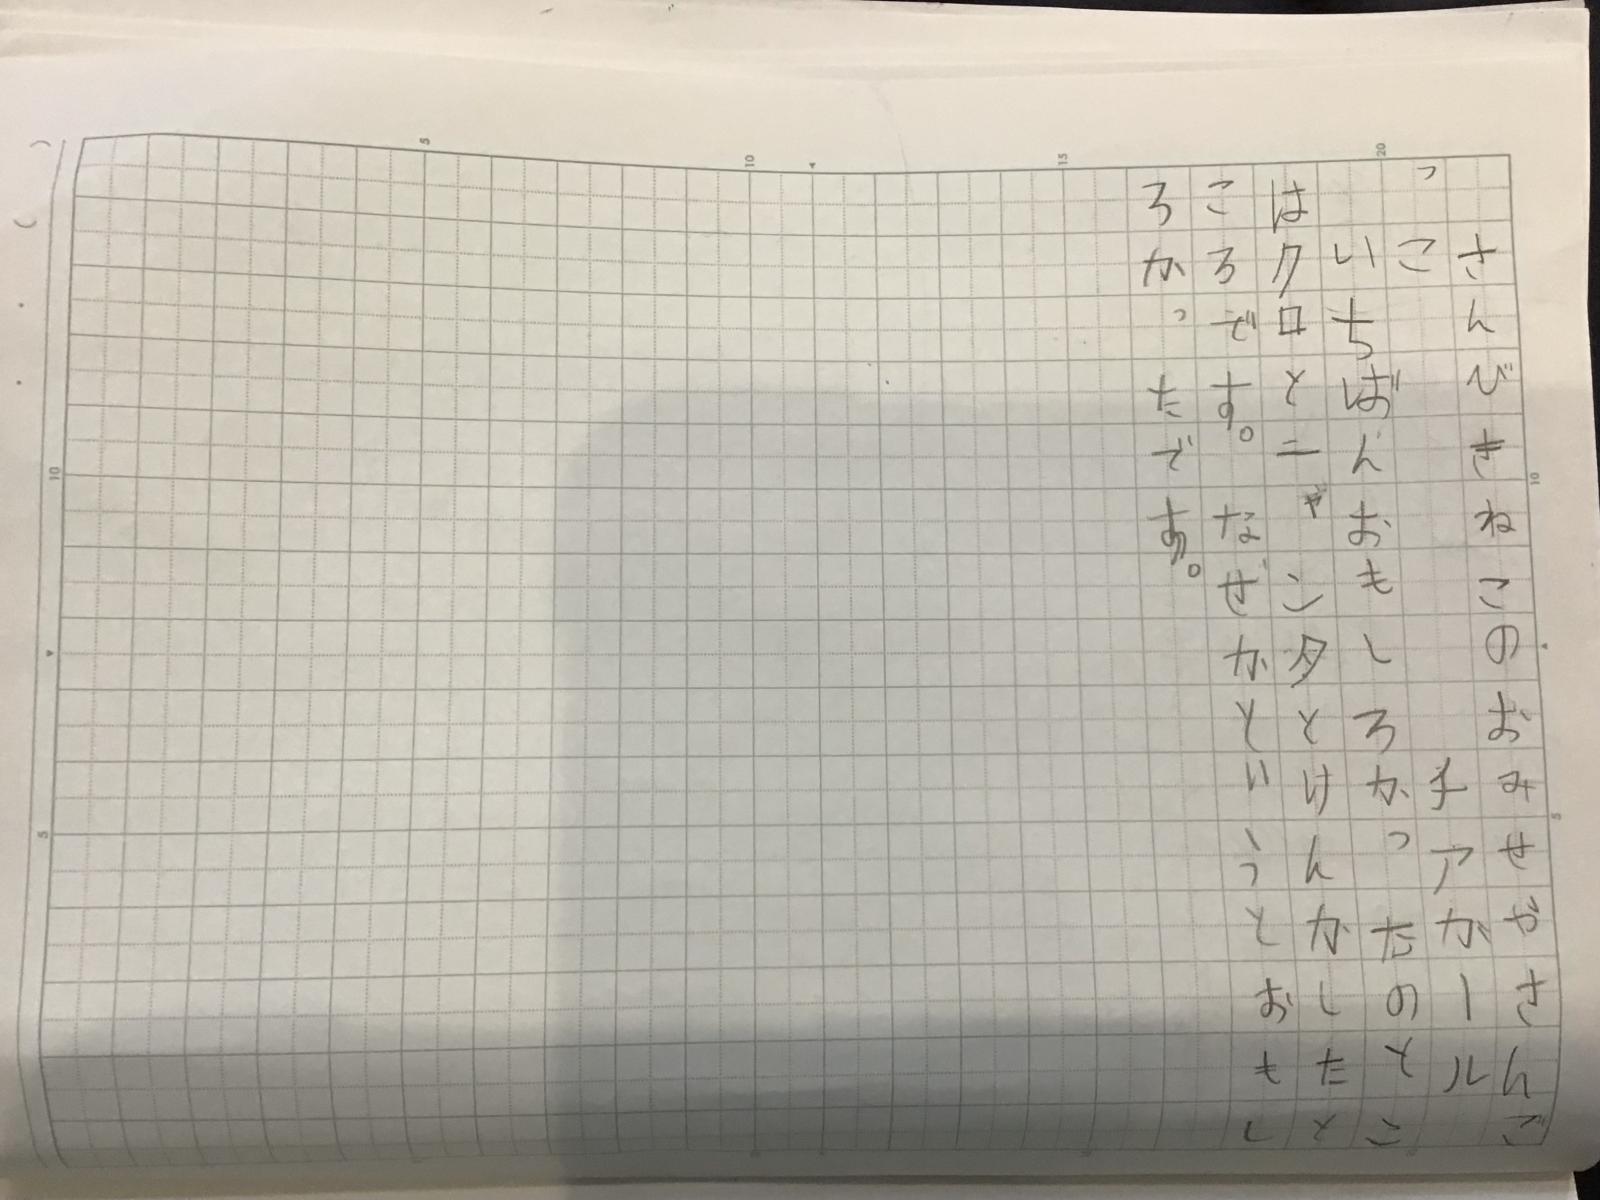 5
10
15
20
さんびきねこのおみせやさんご
っこ　　　　　　　チアガール
いちばんおもしろかったのとこ
はクロとニャンタとけんかしたと
ころです。なぜかというとおもし
ろかったです。
10
5
10
5